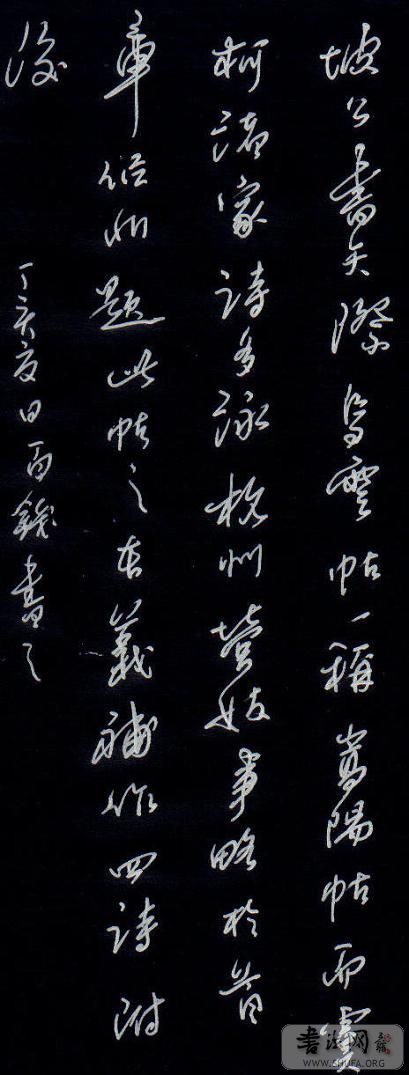 坡公書天際烏雲帖一稱嵩陽帖而虞
柯諸家詩多詠杭州營妓事略於昔
章從此題此帖之本義補作四詩附
後
丁亥夏日百鍊書之
書法网
WWW.SHUFA.ORG